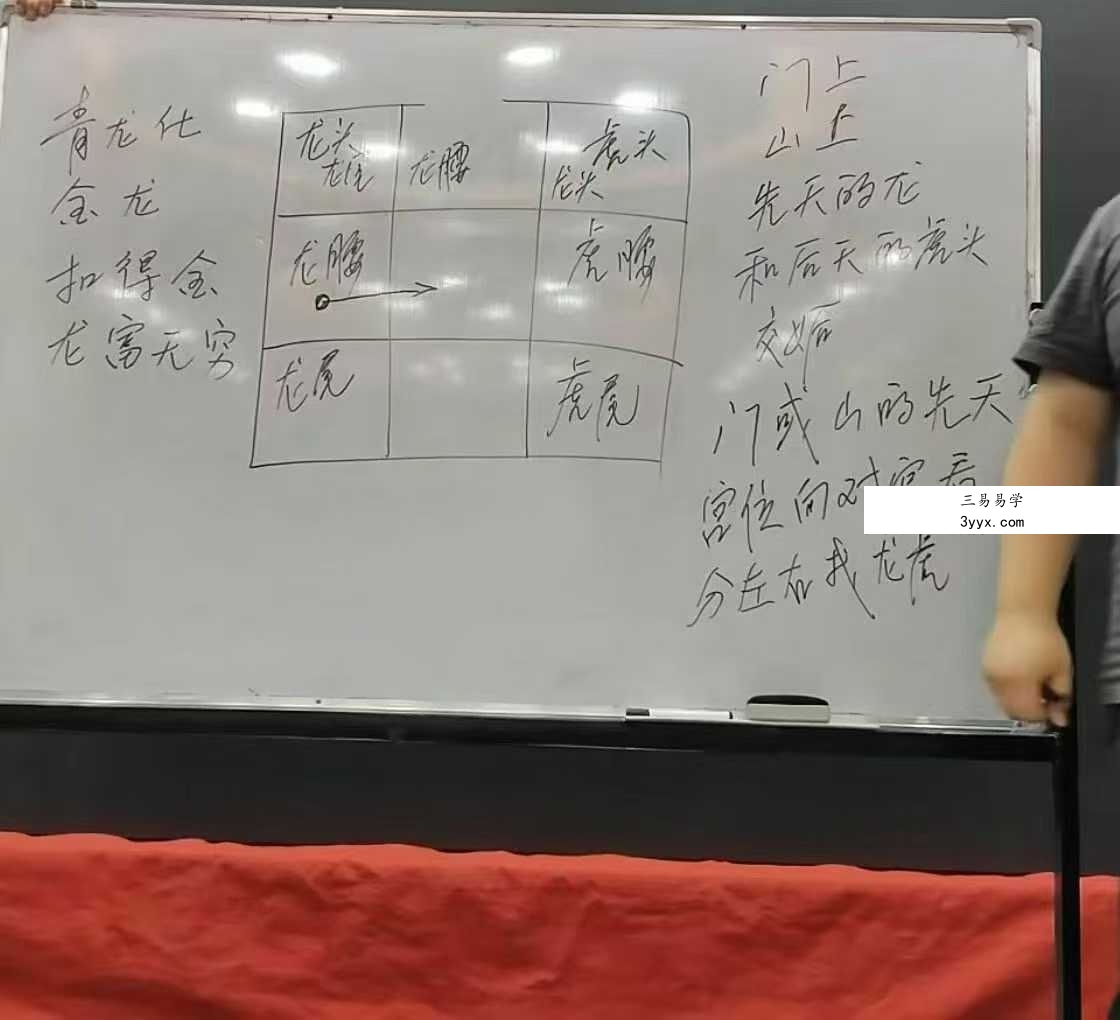 青龙化
金龙
扣得金
龙富无穷
龙头
龙尾
龙腰
虎头
龙头
龙腰
虎腰
龙尾
虎尾
门上
山上
先天的龙
和后天的虎头
交媾
门或山的先天
宫位向对宫看
分左右找龙虎
三易易学
3yyx.com